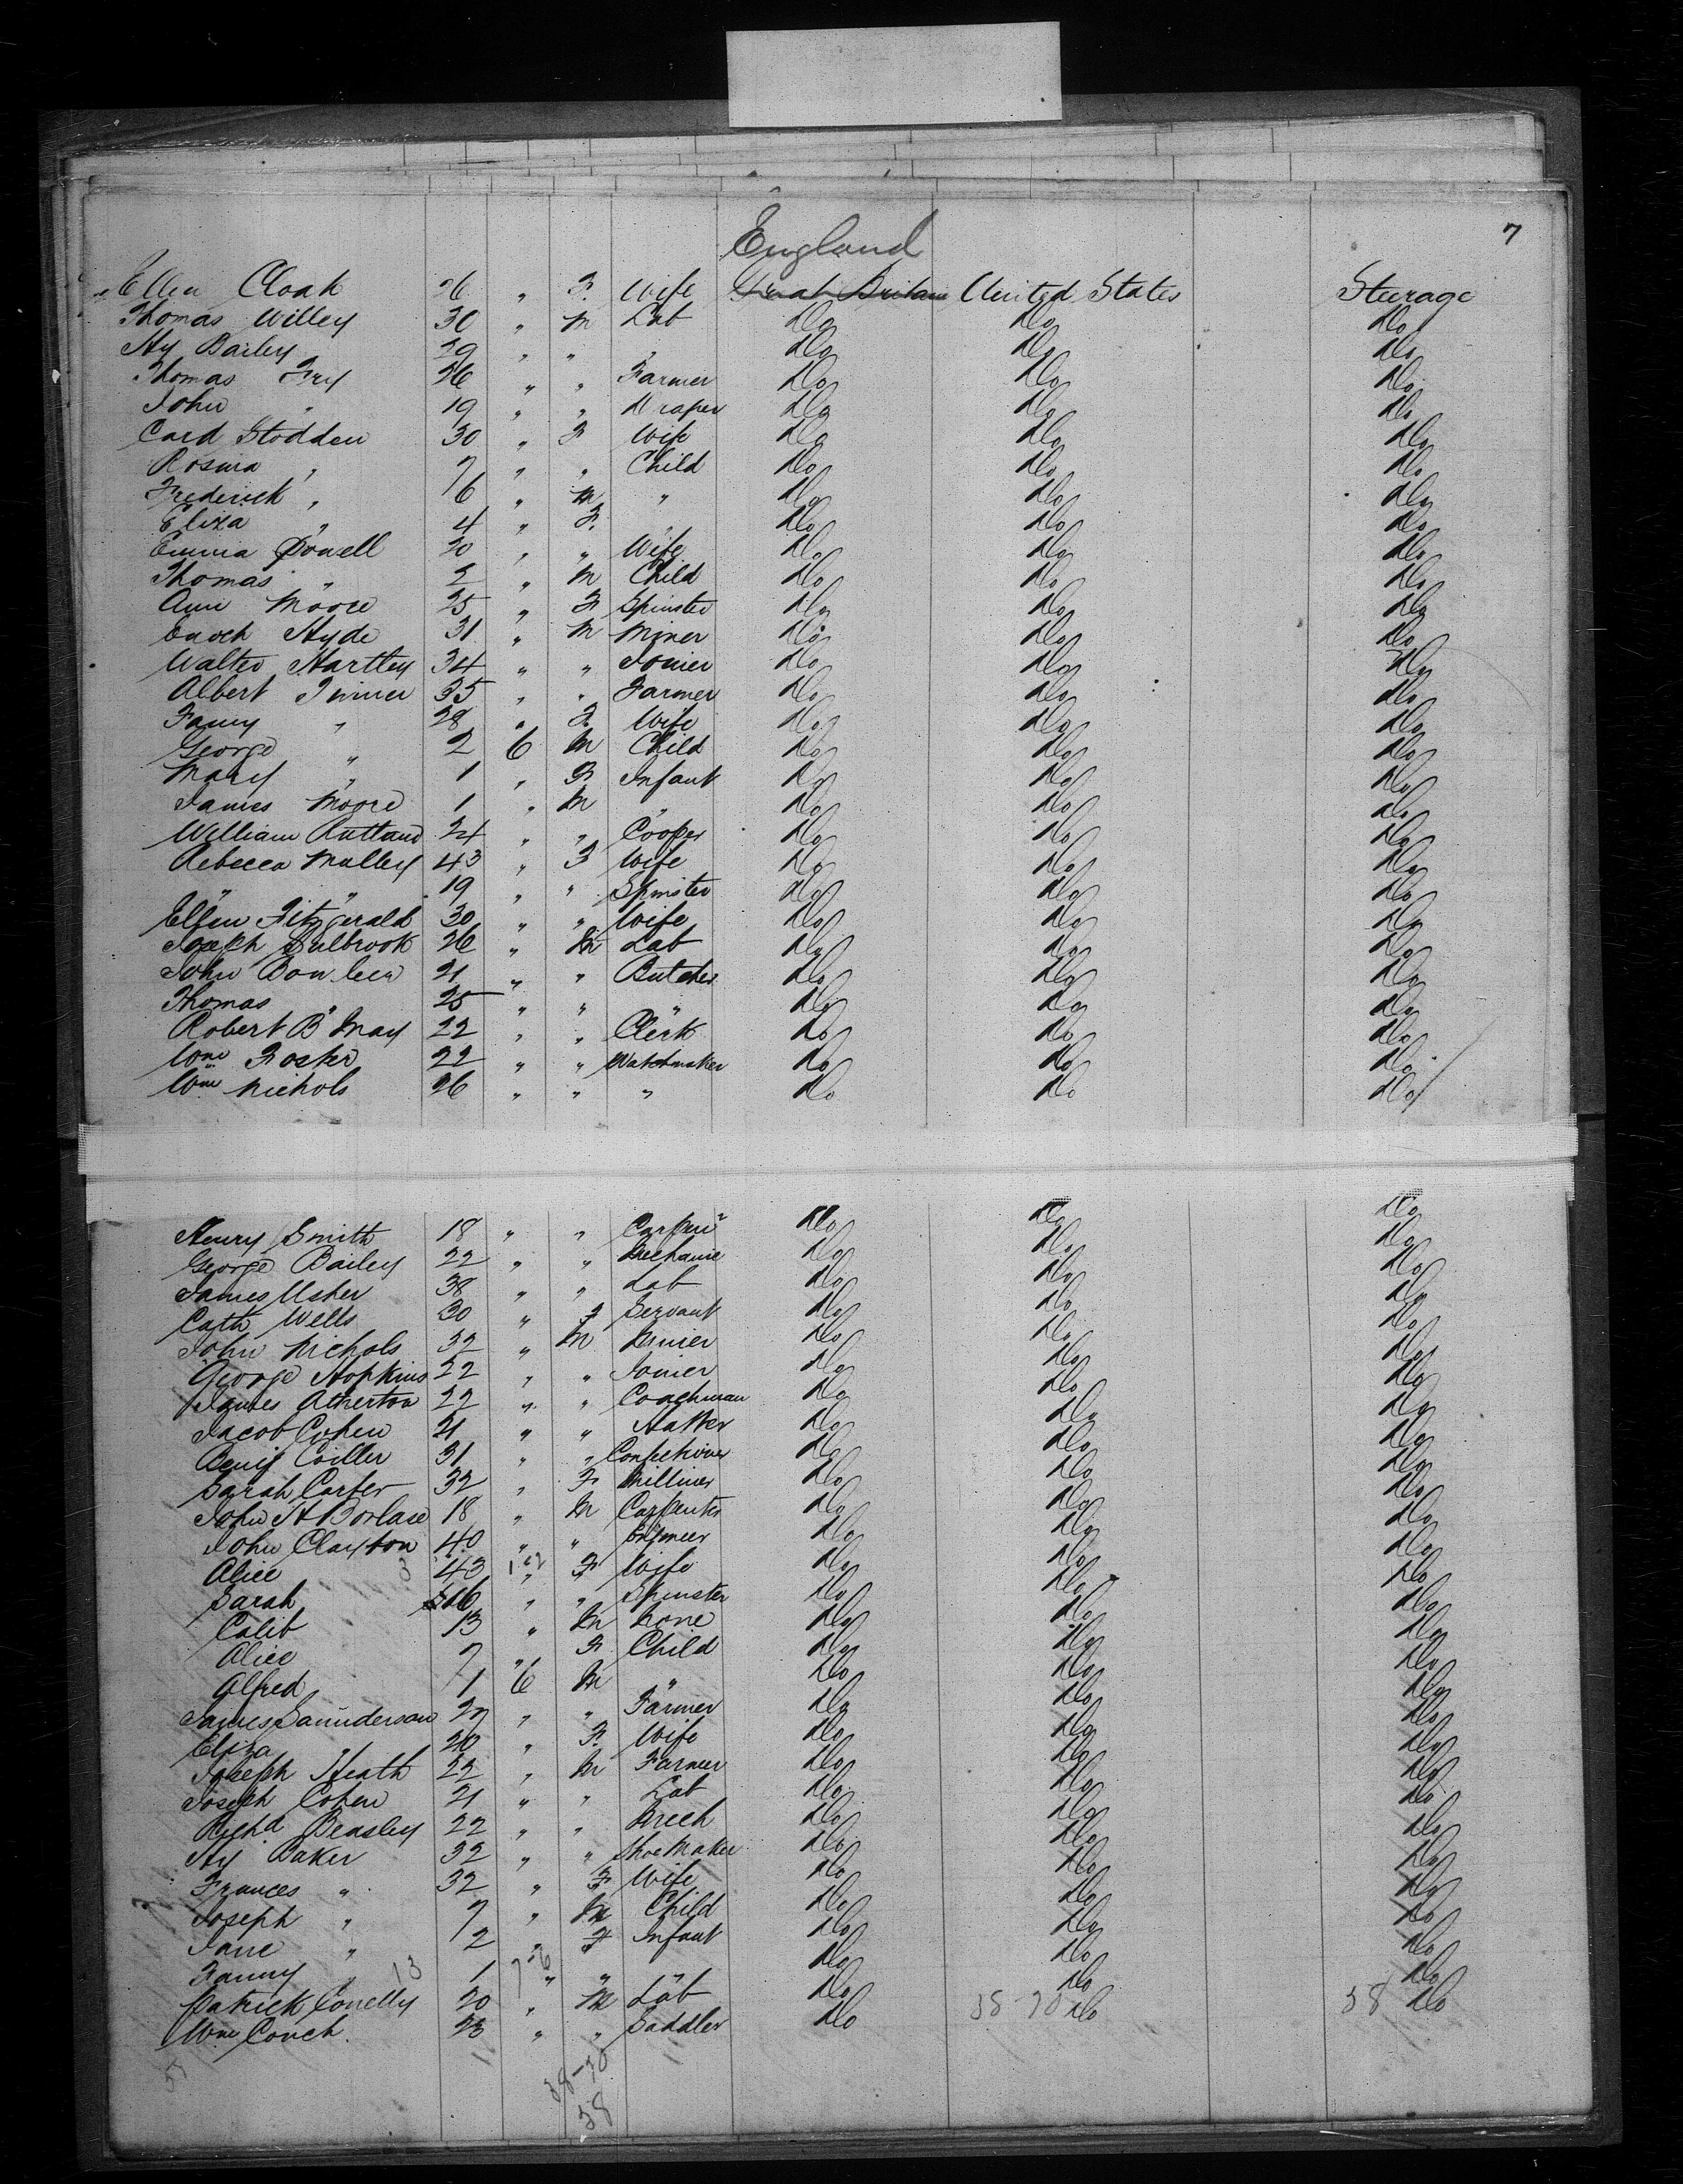 7
England
Ellen Cloak 26 " F. Wife Great Britain United States Steerage
Thomas Willey 30 " M Lab Do Do Do
Hy Bailey 29 " " " Do Do Do
Thomas Fry 26 " " Farmer Do Do Do
John " 19 " " Draper Do Do Do
Card Stodden 30 " F Wife Do Do Do
Rosina " 7 " " Child Do Do Do
Frederick " 6 " M " Do Do Do
Eliza " 4 " F. " Do Do Do
Emma Powell 20 " " Wife Do Do Do
Thomas " 2 " M Child Do Do Do
Ann Moore 25 " F Spinster Do Do Do
Enoch Hyde 31 " M Miner Do Do Do
Walter Hartley 34 " " Joiner Do Do Do
Albert 35 " " Farmer Do Do Do
Fanny " 28 " F. Wife Do Do Do
George " 2 6 M Child Do Do Do
Mary " 1 " F Infant Do Do Do
James Moore 1 " M " Do Do Do
William Rutland 24 " " Cooper Do Do Do
Rebecca Mulley 43 " F Wife Do Do Do
" " 19 " " Spinster Do Do Do
Ellen Fitzgerald 30 " " Wife Do Do Do
Joseph Sulbrook 26 " M Lab Do Do Do
John 21 " " Butcher Do Do Do
Thomas " 25 " " " Do Do Do
Robert B May 22 " " Clerk Do Do Do
Wm Foster 22 " " Watchmaker Do Do Do
Wm Nichols 26 " " " Do Do Do
Henry Smith 18 " " Carpen Do Do Do
George Bailey 22 " " Mechanic Do Do Do
James Usher 38 " " Lab Do Do Do
Cath Wells 30 " F Servant Do Do Do
John Nichols 32 " M Miner Do Do Do
George Hopkins 22 " " Joiner Do Do Do
James Atherton 22 " " Coachman Do Do Do
Jacob Cohen 21 " " Hatter Do Do Do
31 " " Confectioner Do Do Do
Sarah Carter 32 " F Milliner Do Do Do
John H Borlase 18 " M Carpenter Do Do Do
John Clayton 40 " " Engineer Do Do Do
Alice 43 " F Wife Do Do Do
Sarah 16 " " Spinster Do Do Do
Calib 13 " M None Do Do Do
Alice 7 " F Child Do Do Do
Alfred 1 6 M " Do Do Do
James Saunderson 27 " " Farmer Do Do Do
Eliza " 20 " F. Wife Do Do Do
Joseph Heath 22 " M Farmer Do Do Do
Joseph Cohen 21 " " Lab Do Do Do
Richd Beasley 22 " " Mech Do Do Do
Hy Baker 32 " " Shoe Maker Do Do Do
Frances " 32 " F Wife Do Do Do
Joseph " 7 " M Child Do Do Do
Jane " 2 " F Infant Do Do Do
Fanny " 13 1 " " " Do Do Do
Patrick Conelly 20 " M Lab Do Do Do
Wm Couch. 23 " " Saddler Do 38-70 Do 38 Do
38-70
38